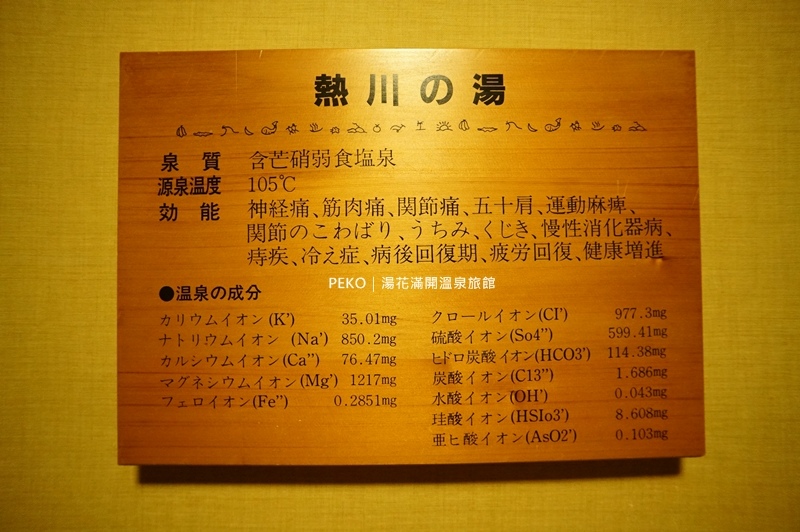 熱川の湯
泉質 含芒硝弱食塩泉
源泉温度 105℃
効能 神経痛、筋肉痛、関節痛、五十肩、運動麻痺、
関節のこわばり、うちみ、くじき、慢性消化器病、
痔疾、冷え症、病後回復期、疲労回復、健康増進
PEKO | 湯花滿開溫泉旅館
●温泉の成分
カリウムイオン(K') 35.01mg
ナトリウムイオン (Na') 850.2mg
カルシウムイオン(Ca'') 76.47mg
マグネシウムイオン(Mg') 1217mg
フェロイオン(Fe'') 0.2851mg
クロールイオン(CI') 977.3mg
硫酸イオン(So4'') 599.41mg
ヒドロ炭酸イオン(HCO3') 114.38mg
炭酸イオン(C13'') 1.686mg
水酸イオン(OH') 0.043mg
珪酸イオン(HSIo3') 8.608mg
亜ヒ酸イオン(AsO2') 0.103mg